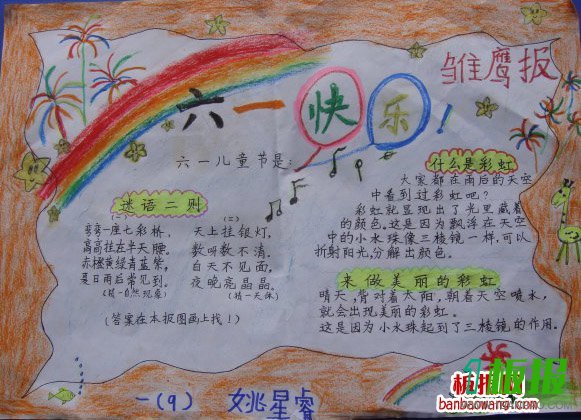 雏鹰报
六一快乐!
六一儿童节是:
谜语二则
(一)
弯弯一座七彩桥,
高高挂在半天腰。
赤橙黄绿青蓝紫,
夏日雨后常见到。
(猜一自然现象)
(二)
天上挂银灯,
数呀数不清。
白天不见面,
夜晚亮晶晶。
(猜一天体)
(答案在本报图画上找!)
什么是彩虹
大家都在雨后的天空
中看到过彩虹吧?
彩虹就显现出了光里藏着
的颜色。这是因为飘浮在天空
中的小水珠像三棱镜一样,可以
折射阳光,分解出颜色。
来做美丽的彩虹
晴天,背对着太阳,朝着天空喷水,
就会出现美丽的彩虹。
这是因为小水珠起到了三棱镜的作用。
一(9) 姚星睿
板报
板报网
banbaowang.com